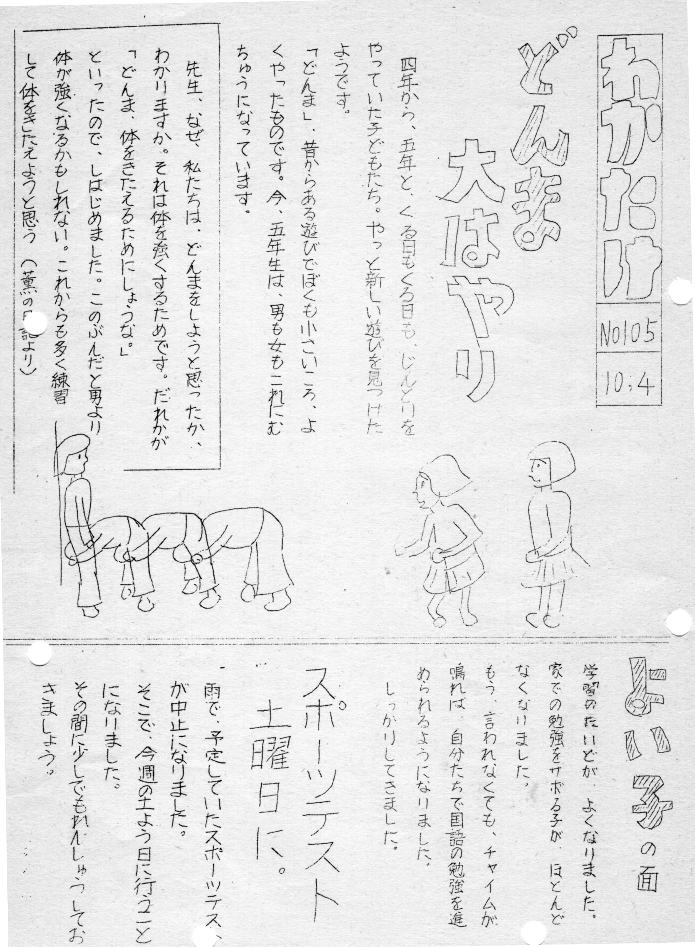 わかたけ
No105
10.4
どんま
大はやり
四年から、五年と、くる日もくる日も、じんとりを
やっていた子どもたち。やっと新しい遊びを見つけた
ようです。
「どんま」、昔からある遊びでぼくも小さいころ、よ
くやったものです。今、五年生は、男も女もこれにむ
ちゅうになっています。
先生、なぜ、私たちは、どんまをしようと思ったか、
わかりますか。それは体を強くするためです。だれかが
「どんま、体をきたえるためにしょうな。」
といったので、しはじめました。このぶんだと男より
体が強くなるかもしれない。これからも多く練習
して体をきたえようと思う (薫の日記より)
よい子の面
学習のたいどが、よくなりました。
家での勉強をサボる子が、ほとんど
なくなりました。
もう、言われなくても、チャイムが
鳴れば、自分たちで国語の勉強を進
められるようになりました。
しっかりしてきました。
スポーツテスト
土曜日に。
雨で、予定していたスポーツテス、
が中止になりました。
そこで、今週の土よう日に行うこと
になりました。
その間に少しでもれんしゅうしてお
きましょう。